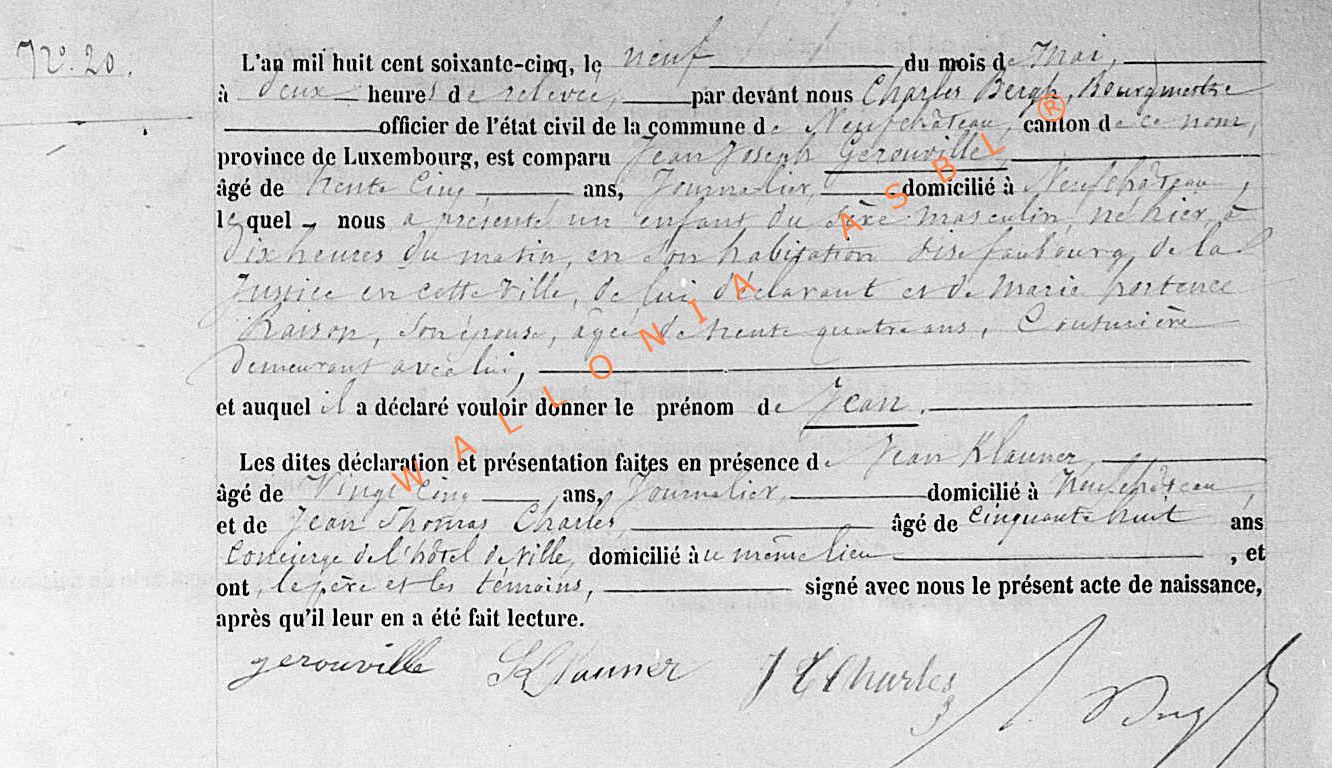 N°. 20.
L'an mil huit cent soixante-cinq, le neuf du mois de Mai,
à deux heures de relevée, par devant nous Charles Bergh, Bourgmestre
officier de l'état civil de la commune de Neufchâteau, canton de ce nom,
province de Luxembourg, est comparu Jean Joseph Gerouville,
âgé de trente cinq ans, Journalier, domicilié à Neufchâteau,
lequel nous a présenté un enfant du sexe masculin, né hier, à
dix heures du matin, en son habitation sise faubourg de la
Justice en cette ville, de lui déclarant et de Marie hortence
Raison, son épouse, âgée de trente quatre ans, Couturière
demeurant avec lui,
et auquel il a déclaré vouloir donner le prénom de Jean.
Les dites déclaration et présentation faites en présence de Jean Klauner,
âgé de Vingt Cinq ans, Journalier, domicilié à Neufchâteau,
et de Jean Thomas Charles, âgé de Cinquante huit ans
Concierge de l'hôtel de ville, domicilié au même lieu, et
ont, le père et les témoins, signé avec nous le présent acte de naissance,
après qu'il leur en a été fait lecture.
gerouville Klauner J T Charles
WALLONIA ASBL ®